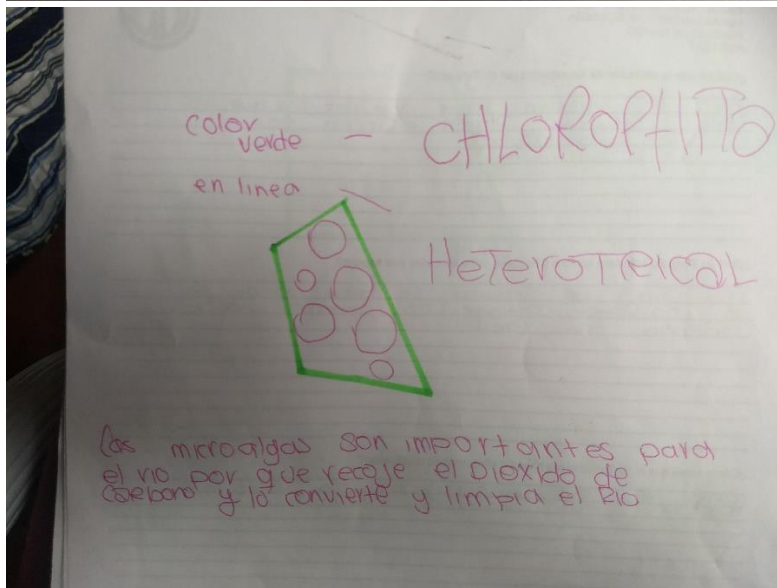 color
verde — CHLOROPHITA
en linea
HeteroTRICAL
Las microalgas son importantes para
el rio por que recoje el Dioxido de
Carbono y lo convierte y limpia el Rio